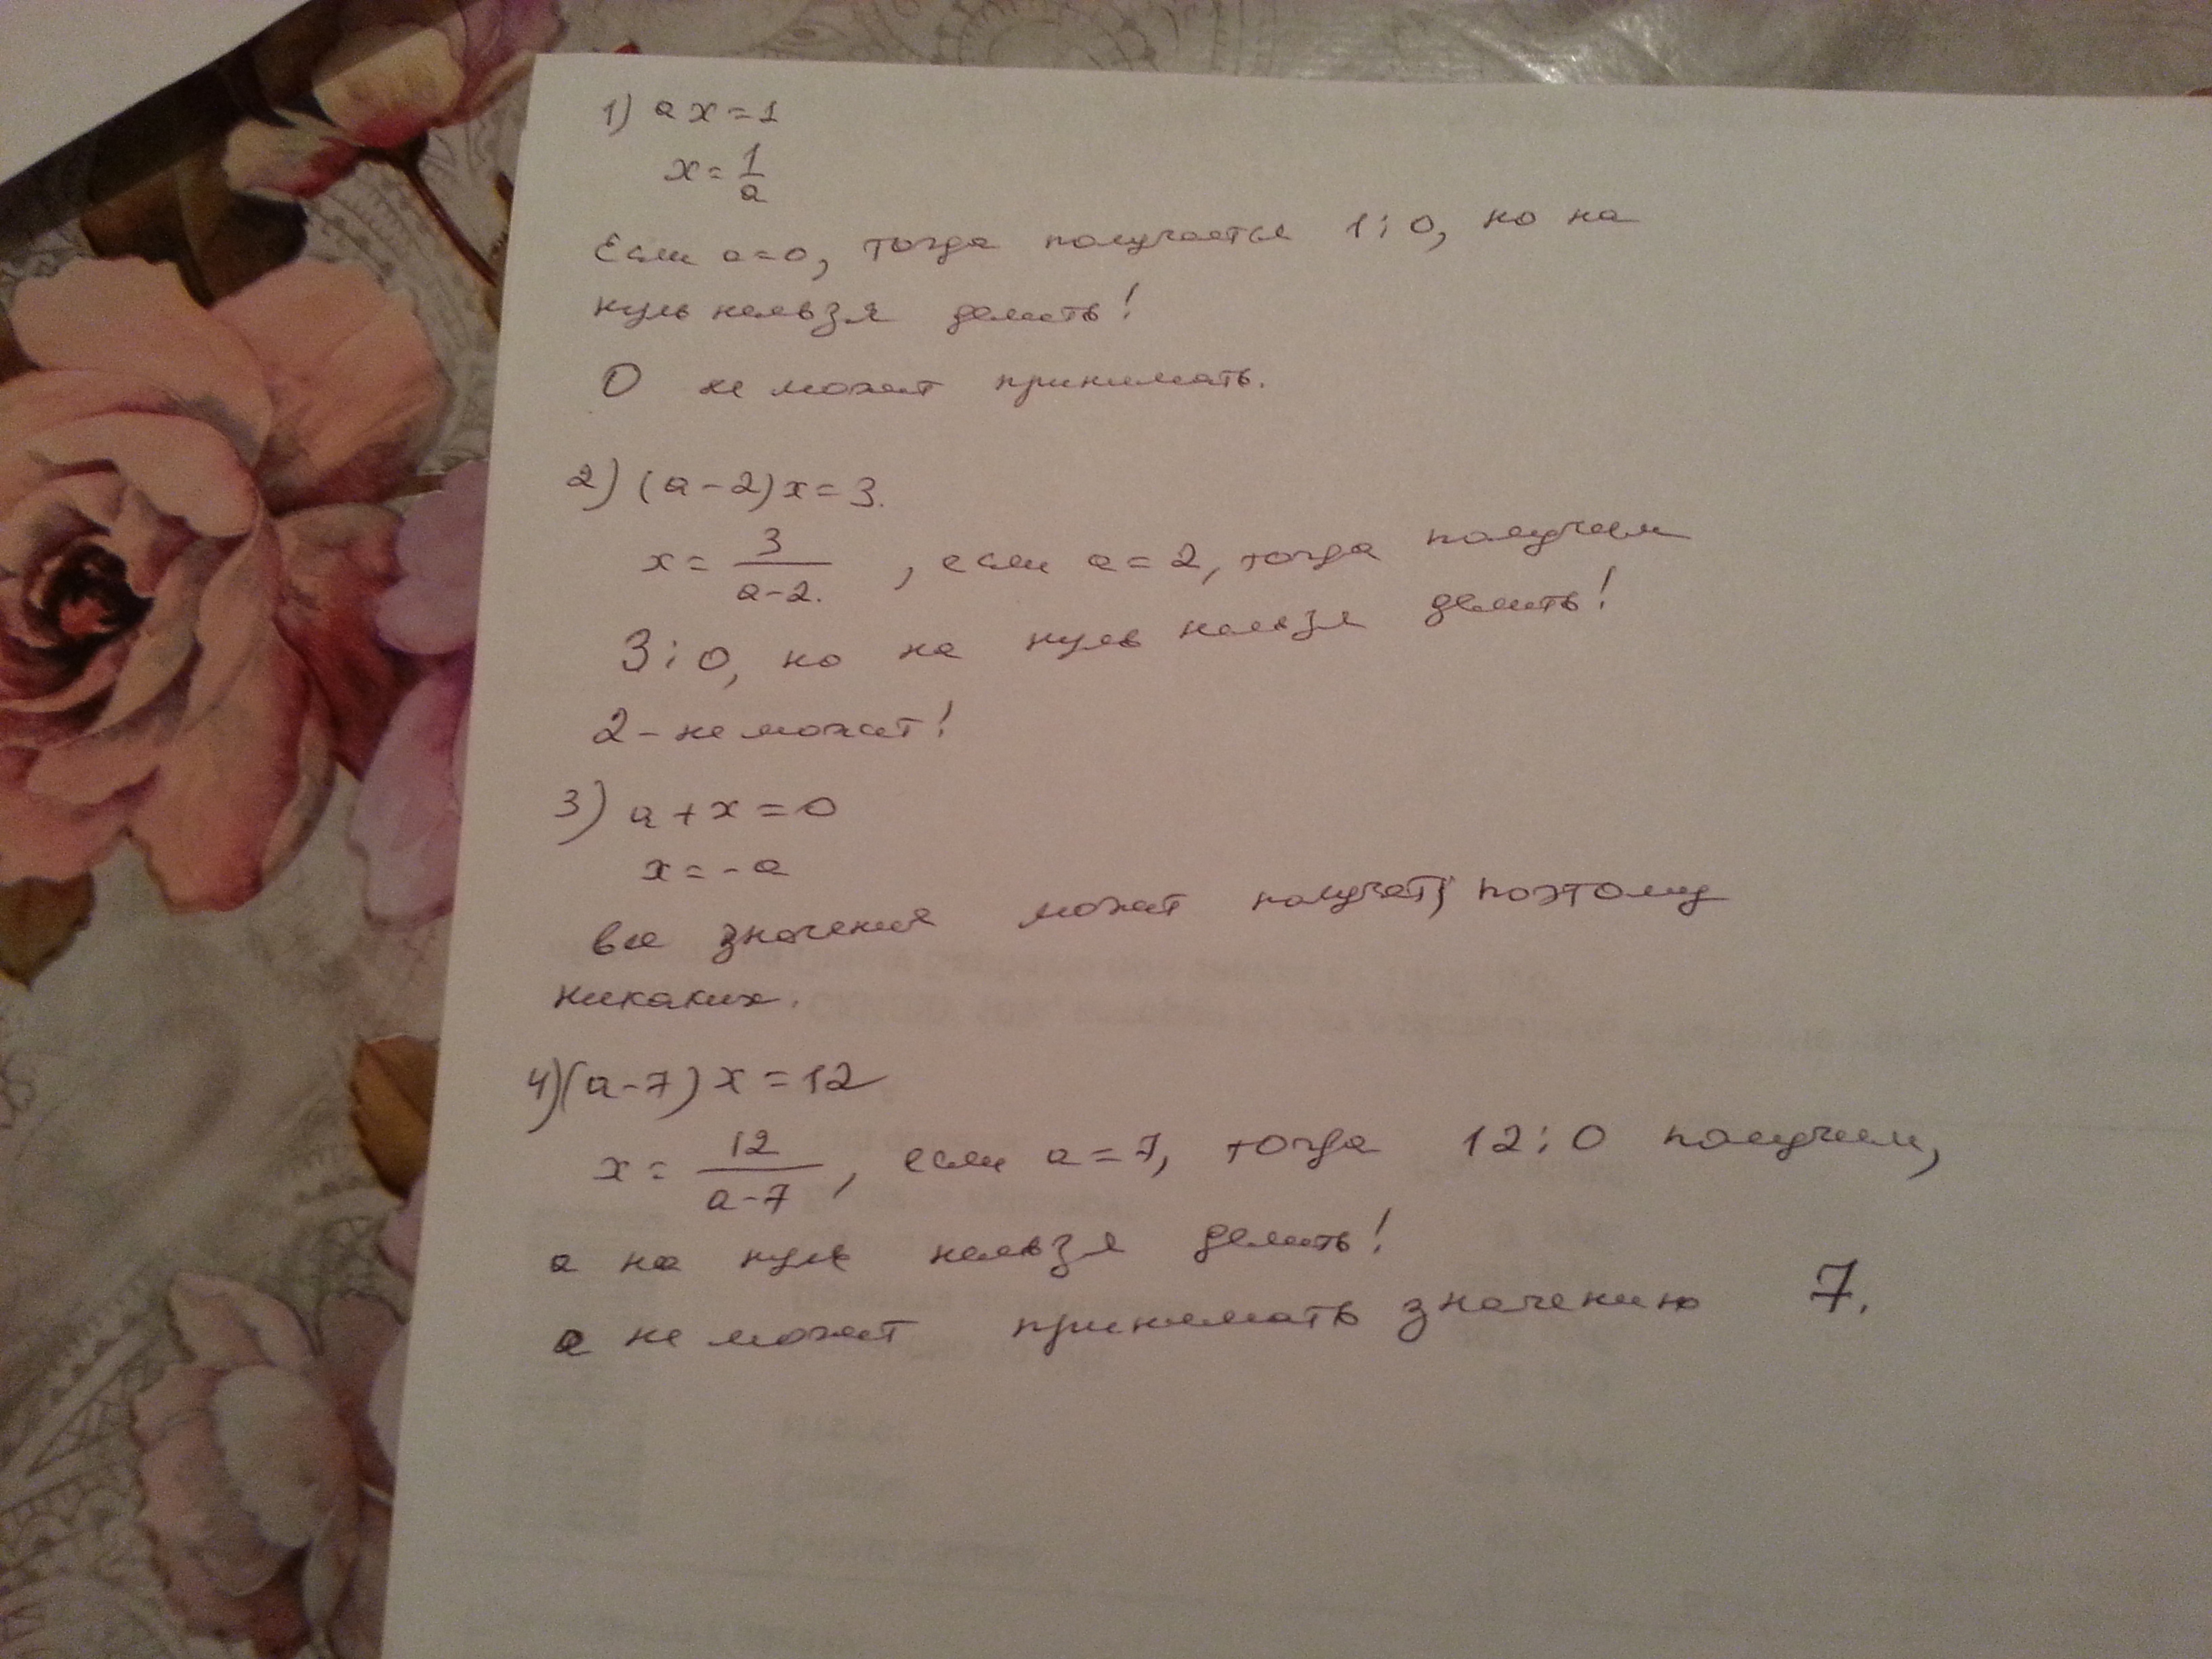 1) ax=1
x=1/a
Если a=0, тогда получается 1:0, но на
нуль нельзя делить!
0 не может принимать.
2) (a-2)x=3.
x=3/(a-2.), если a=2, тогда получим
3:0, но на нуль нельзя делить!
2-не может!
3) a+x=0
x=-a
все значения может получать, поэтому
никаких.
4)(a-7)x=12
x=12/(a-7), если a=7, тогда 12:0 получим,
а на нуль нельзя делить!
а не может принимать значению 7.